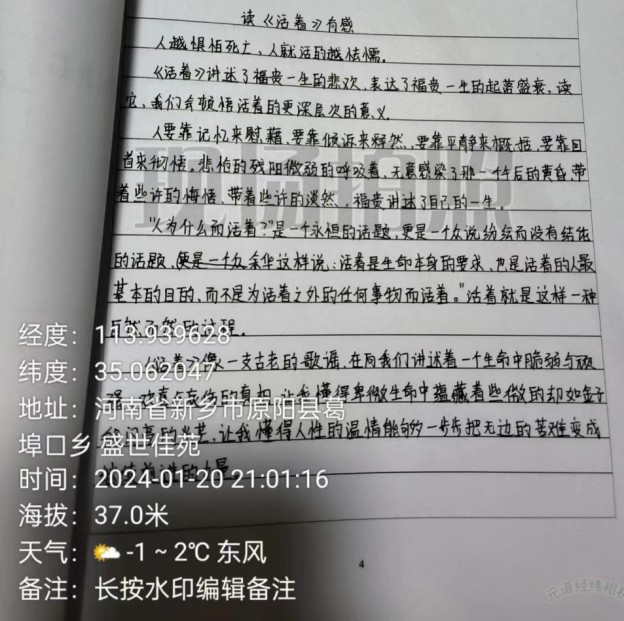 读《活着》有感
人越惧怕死亡、人就活的越怯懦.
《活着》讲述了福贵一生的悲欢.表达了福贵一生的起落盛衰,读
它,我们会顿悟活着的更深层次的意义.
人要靠记忆来慰藉.要靠倾诉来释然、要靠平静来概括.要靠回
首来彻悟.悲怕的残阳微弱的呼吸着,无意感染了那一个午后的黄昏.带
着些许的悔悟、带着些许的淡然.,福贵讲述了自己的一生.
"人为什么而活着?"是一个永恒的话题,更是一个众说纷纭而没有结论
的话题.便是一个余华这样说:活着是生命本身的要求,也是活着的人最
基本的目的,而不是为活着之外的任何事物而活着."活着就是这样一种
《活着》像一支古老的歌谣.在向我们讲述着一个生命中脆弱与顽
让我懂得卑微生命中蕴藏着些微的却如金子
让我懂得人性的温情能够一步步把无边的苦难变成
经度:113.939628
纬度:35.062047
地址:河南省新乡市原阳县葛
埠口乡·盛世佳苑
时间:2024-01-20 21:01:16
海拔:37.0米
天气:-1 ~ 2℃ 东风
备注:长按水印编辑备注
现场拍照
4
元道经纬相机